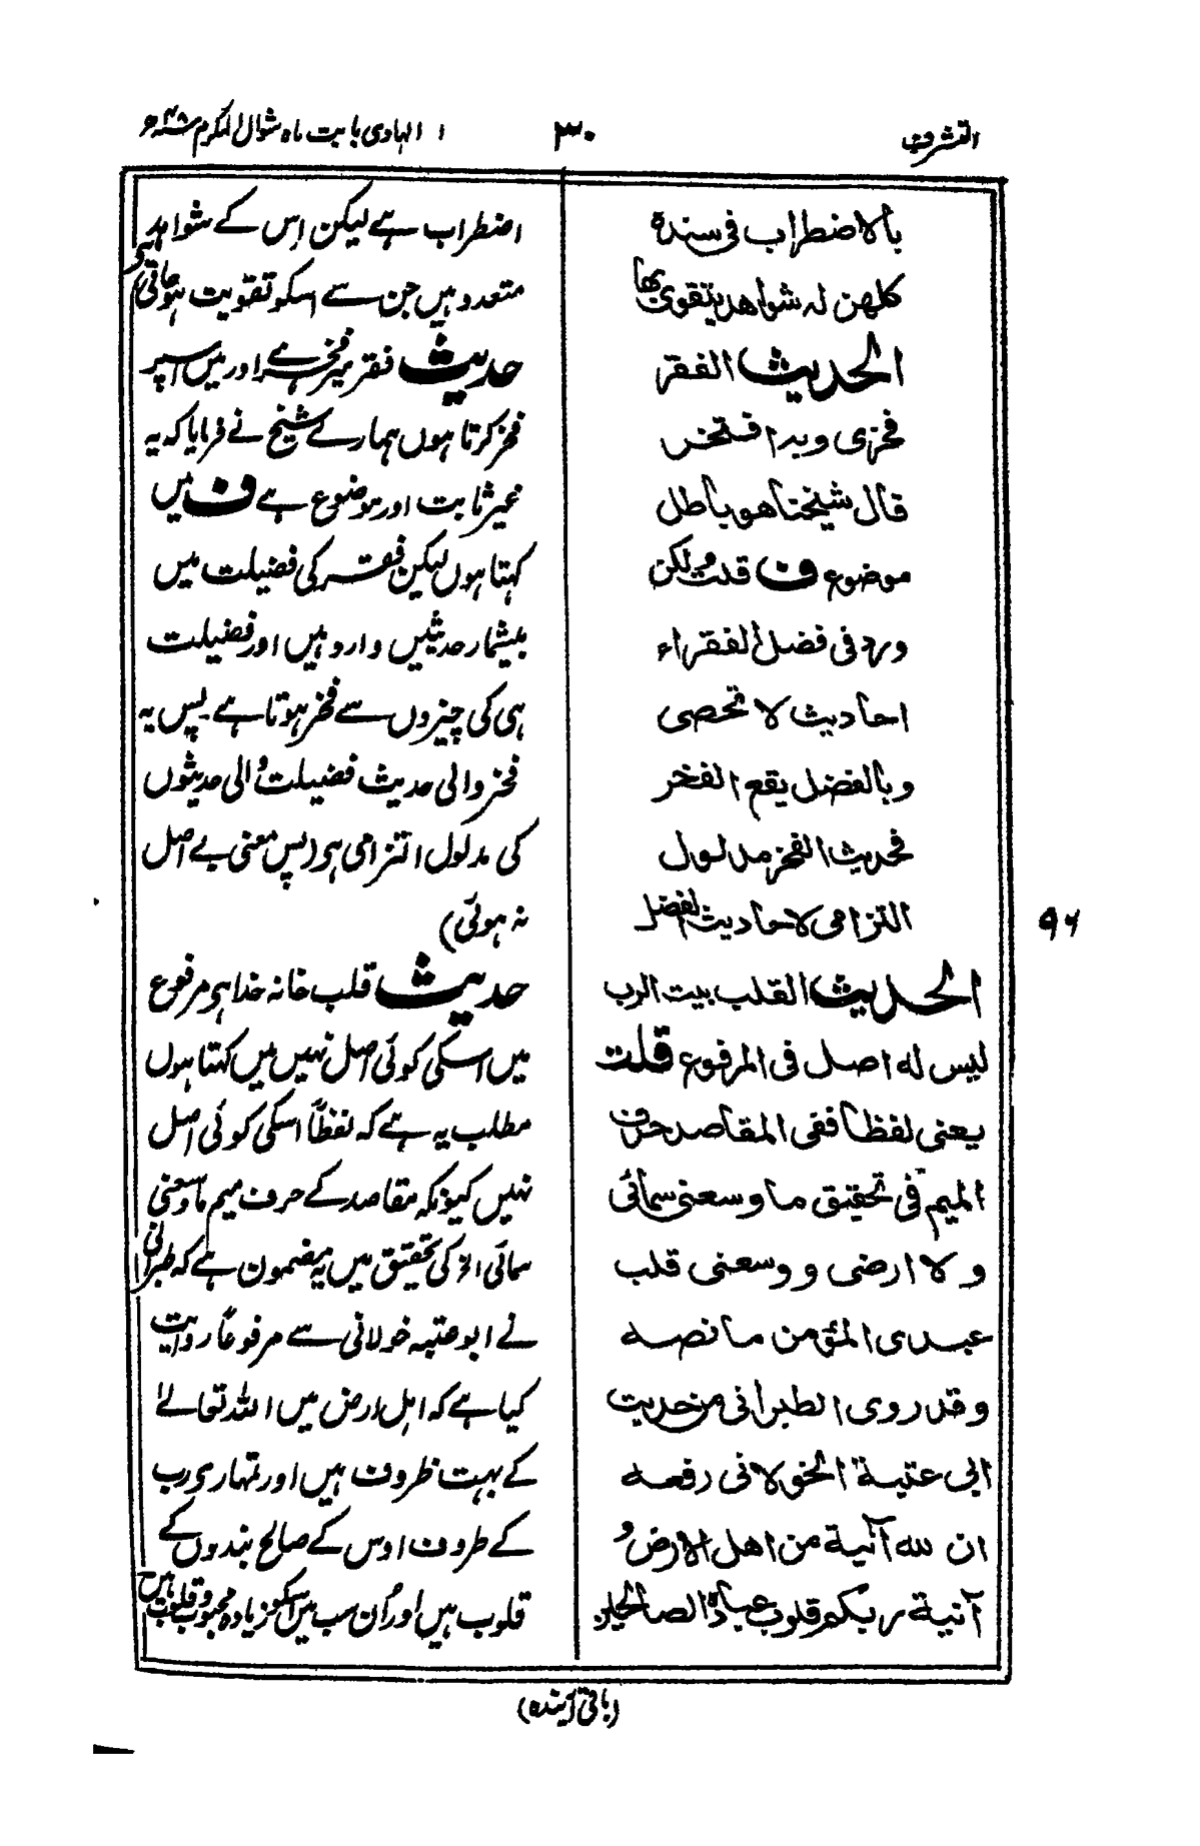 التشرف
۳۰
الہادی بابت ماہ شوال المکرم ۴۸ھ
بالاضطراب فی سندہ
کلهن له شواهد یتقوی بها
الحدیث الفقر
فخری وبه افتخر
قال شیخنا هو باطل
موضوع ف قلت ولکن
ورد فی فضل الفقراء
احادیث لا تحصی
وبالفضل یقع الفخر
فحدیث الفخر مدلول
التزامی لاحادیث الفضل
۹۶
الحدیث القلب بیت الرب
لیس له اصل فی المرفوع قلت
یعنی لفظا ففی المقاصد حرف
المیم فی تحقیق ما وسعنی سمائی
ولا ارضی ووسعنی قلب
عبدی المؤمن ما نصه
وقد روی الطبرانی من حدیث
ابی عتبة الخولانی رفعه
ان لله آنیة من اهل الارض و
آنیة ربکم قلوب عباده الصالحین
اضطراب ہے لیکن اِس کے شواہد
متعدد ہیں جن سے اسکو تقویت ہوجاتی ہی
حدیث فقر میرا فخر ہے اور میں اسپر
فخر کرتا ہوں ہمارے شیخ نے فرمایا کہ یہ
غیر ثابت اور موضوع ہے ف میں
کہتا ہوں لیکن فقر کی فضیلت میں
بیشمار حدیثیں وارد ہیں اور فضیلت
ہی کی چیزوں سے فخر ہوتا ہے۔ پس یہ
فخر والی حدیث فضیلت والی حدیثوں
کی مدلول التزامی ہی (پس معنی بے اصل
نہ ہوئی)
حدیث قلب خانہ خدا ہی مرفوع
میں اسکی کوئی اصل نہیں میں کہتا ہوں
مطلب یہ ہے کہ لفظاً اسکی کوئی اصل
نہیں کیونکہ مقاصد کے حرف میم ما وسعنی
سمائی الخ کی تحقیق میں یہ مضمون ہے کہ طبرانی
نے ابو عتبہ خولانی سے مرفوعاً روایت
کیا ہے کہ اہل ارض میں اللہ تعالےٰ
کے بہت ظروف ہیں اور تمہاری رب
کے ظروف اوس کے صالح بندوں کے
قلوب ہیں اور اُن سب میں اسکو زیادہ محبوب وہ قلوب ہیں
(باقی آیندہ)